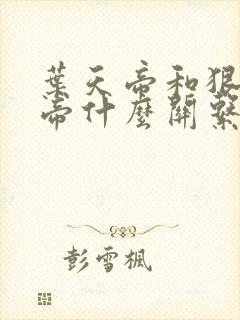 葉天帝和狠
帝什麼關繫
彭雪楓